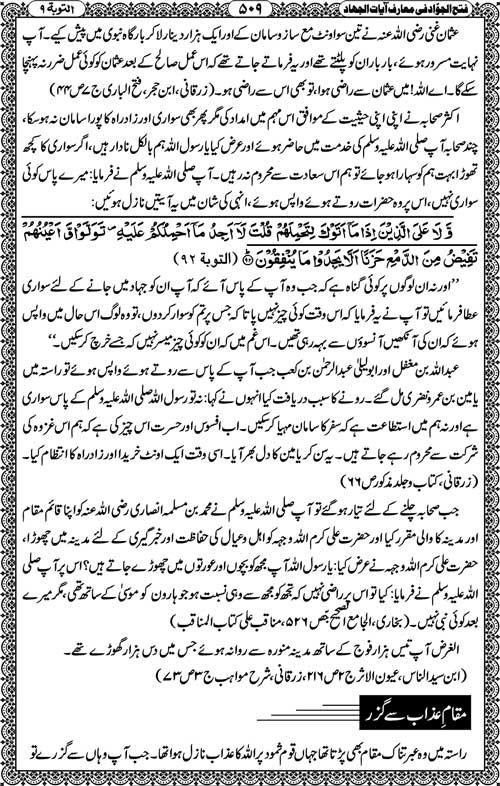 فتح الجوّاد فی معارف آیات الجہاد ۵۰۹ التوبۃ ۹
عثمان غنی رضی اللہ عنہ نے تین سو اونٹ مع ساز و سامان کے اور ایک ہزار دینار لا کر بارگاہ نبوی میں پیش کیے۔ آپ
نہایت مسرور ہوئے، بار بار ان کو پلٹتے تھے اور یہ فرماتے جاتے تھے کہ اس عمل صالح کے بعد عثمان کو کوئی عمل ضرر نہ پہنچا
سکے گا۔ اے اللہ! میں عثمان سے راضی ہوا، تو بھی اس سے راضی ہو۔ (زرقانی، ابن حجر، فتح الباری ج ۷ ص ۴۴)
اکثر صحابہ نے اپنی اپنی حیثیت کے موافق اس مہم میں امداد کی مگر پھر بھی سواری اور زاد راہ کا پورا سامان نہ ہو سکا،
چند صحابہ آپ صلی اللہ علیہ وسلم کی خدمت میں حاضر ہوئے اور عرض کیا یا رسول اللہ ہم بالکل نادار ہیں، اگر سواری کا کچھ
تھوڑا بہت ہم کو سہارا ہو جائے تو ہم اس سعادت سے محروم نہ رہیں۔ آپ صلی اللہ علیہ وسلم نے فرمایا: میرے پاس کوئی
سواری نہیں، اس پر وہ حضرات روتے ہوئے واپس ہوئے، انہی کی شان میں یہ آیتیں نازل ہوئیں:
وَّلَا عَلَى الَّذِيْنَ اِذَا مَاۤ اَتَوْكَ لِتَحْمِلَهُمْ قُلْتَ لَاۤ اَجِدُ مَاۤ اَحْمِلُكُمْ عَلَيْهِ تَوَلَّوْا وَّاَعْيُنُهُمْ
تَفِيْضُ مِنَ الدَّمْعِ حَزَنًا اَلَّا يَجِدُوْا مَا يُنْفِقُوْنَ (التوبۃ ۹۲)
’’اور نہ ان لوگوں پر کوئی گناہ ہے کہ جب وہ آپ کے پاس آئے کہ آپ ان کو جہاد میں جانے کے لئے سواری
عطا فرمائیں تو آپ نے یہ فرمایا کہ اس وقت کوئی چیز نہیں پاتا کہ جس پر تم کو سوار کر دوں، تو وہ لوگ اس حال میں واپس
ہوئے کہ ان کی آنکھیں آنسوؤں سے بہہ رہی تھیں۔ اس غم میں کہ ان کو کوئی چیز میسر نہیں کہ جسے خرچ کر سکیں۔‘‘
عبداللہ بن مغفل اور ابولیلیٰ عبدالرحمٰن بن کعب جب آپ کے پاس سے روتے ہوئے واپس ہوئے تو راستہ میں
یامین بن عمرو نضری مل گئے۔ رونے کا سبب دریافت کیا انہوں نے کہا: نہ تو رسول اللہ صلی اللہ علیہ وسلم کے پاس سواری
ہے اور نہ ہم میں استطاعت ہے کہ سفر کا سامان مہیا کر سکیں۔ اب افسوس اور حسرت اس چیز کی ہے کہ ہم اس غزوہ کی
شرکت سے محروم رہے جاتے ہیں۔ یہ سن کر یامین کا دل بھر آیا۔ اسی وقت ایک اونٹ خریدا اور زاد راہ کا انتظام کیا۔
(زرقانی، کتاب و جلد مذکور ص ۶۶)
جب صحابہ چلنے کے لئے تیار ہو گئے تو آپ صلی اللہ علیہ وسلم نے محمد بن مسلمہ انصاری رضی اللہ عنہ کو اپنا قائم مقام
اور مدینہ کا والی مقرر کیا اور حضرت علی کرم اللہ وجہہ کو اہل و عیال کی حفاظت اور خبر گیری کے لئے مدینہ میں چھوڑا،
حضرت علی کرم اللہ وجہہ نے عرض کیا: یا رسول اللہ آپ مجھ کو بچوں اور عورتوں میں چھوڑے جاتے ہیں؟ اس پر آپ صلی
اللہ علیہ وسلم نے فرمایا: کیا تو اس پر راضی نہیں کہ تجھ کو مجھ سے وہی نسبت ہو جو ہارون کو موسیٰ کے ساتھ تھی، مگر میرے
بعد کوئی نبی نہیں۔ (بخاری، الجامع الصحیح ص ۵۲۶، مناقب علی کتاب المناقب)
الغرض آپ تیس ہزار فوج کے ساتھ مدینہ منورہ سے روانہ ہوئے جس میں دس ہزار گھوڑے تھے۔
(ابن سید الناس، عیون الاثر ج ۲ ص ۲۱۶، زرقانی، شرح مواہب ج ۳ ص ۷۳)
مقامِ عذاب سے گزر
راستہ میں وہ عبرتناک مقام بھی پڑتا تھا جہاں قوم ثمود پر اللہ کا عذاب نازل ہوا تھا۔ جب آپ وہاں سے گزرے تو